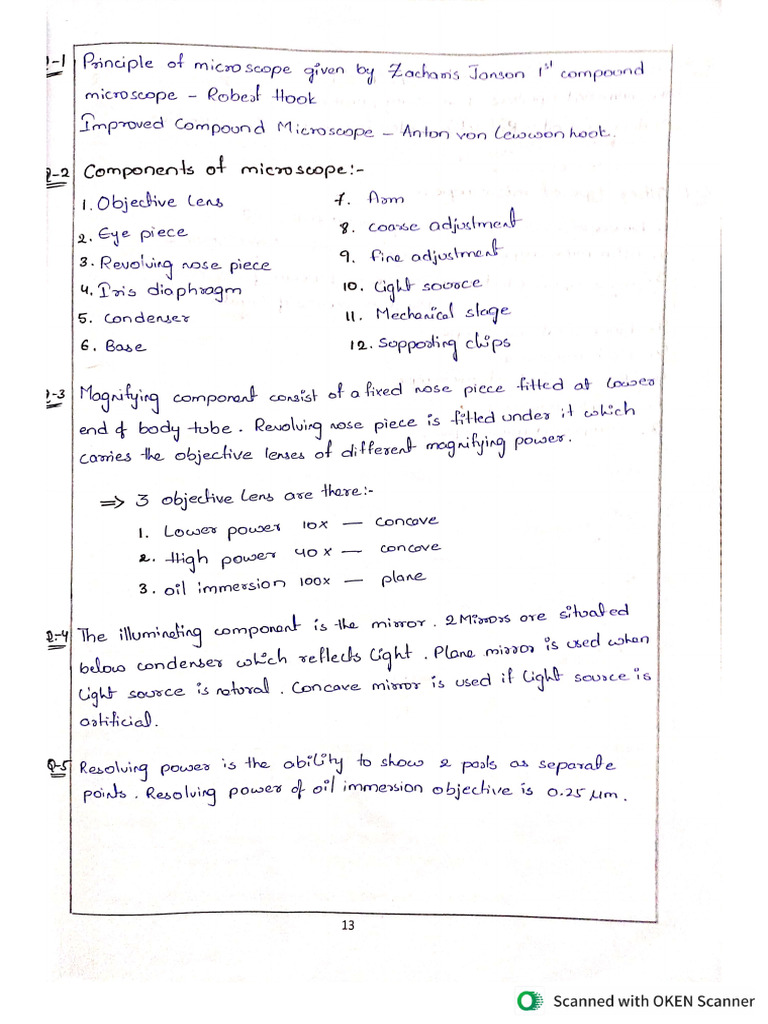 Q-1 Principle of microscope given by Zacharis Janson 1st compound
microscope - Robert Hook
Improved Compound Microscope - Anton von Lewwonhook.
Q-2 Components of microscope:-
1. Objective lens
2. Eye piece
3. Revolving nose piece
4. Iris diaphragm
5. Condenser
6. Base
7. Arm
8. Coarse adjustment
9. Fine adjustment
10. Light source
11. Mechanical stage
12. Supporting clips
Q-3 Magnifying component consist of a fixed nose piece fitted at lower
end of body tube. Revolving nose piece is fitted under it which
carries the objective lenses of different magnifying power.
⇒ 3 objective lens are there:-
1. Lower power 10x — concave
2. High power 40x — concave
3. oil immersion 100x — plane
Q-4 The illuminating component is the mirror. 2 Mirrors are situated
below condenser which reflects light. Plane mirror is used when
light source is natural. Concave mirror is used if light source is
artificial.
Q-5 Resolving power is the ability to show 2 points as separate
points. Resolving power of oil immersion objective is 0.25 μm.
13
Scanned with OKEN Scanner